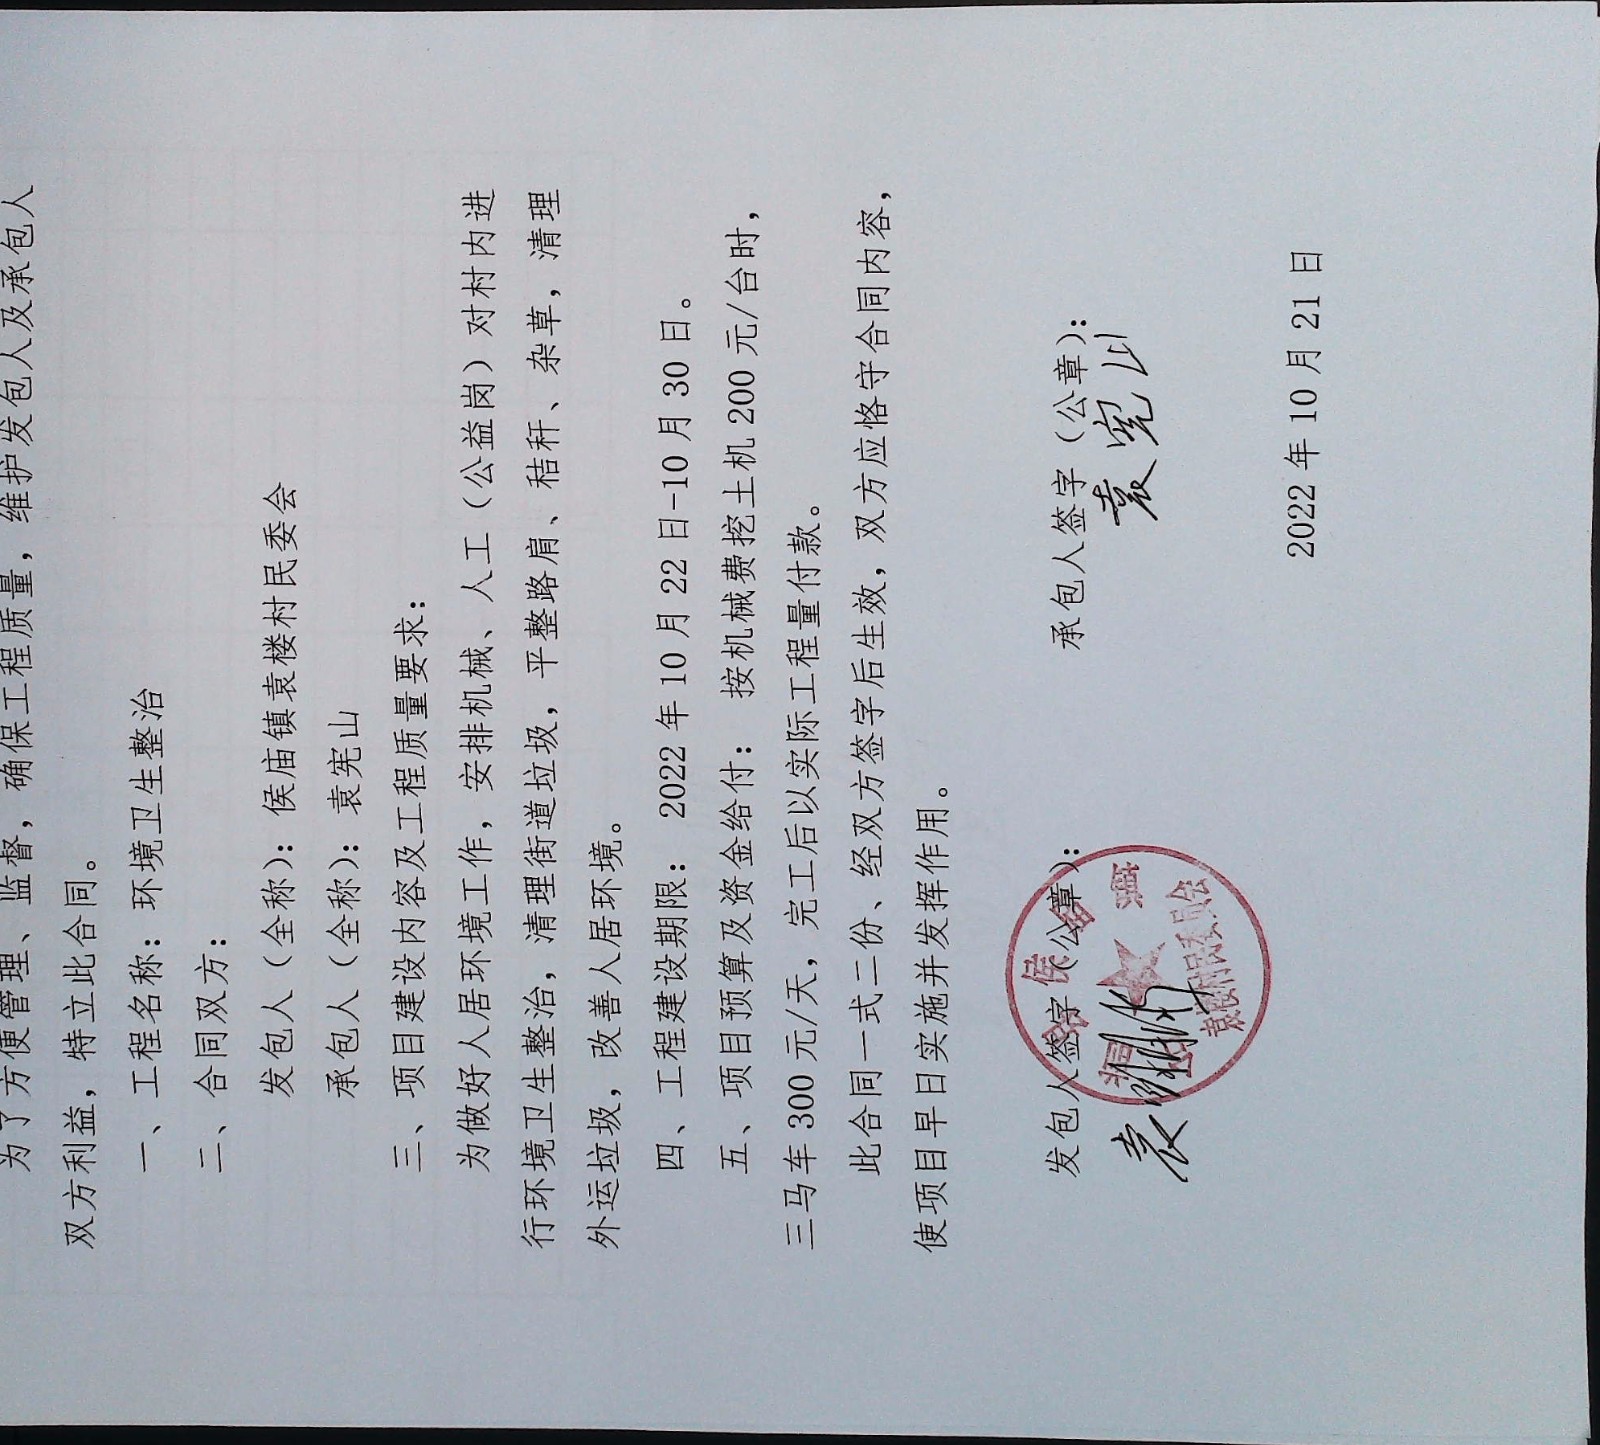 为了方便管理、监督，确保工程质量，维护发包人及承包人
双方利益，特立此合同。
一、工程名称：环境卫生整治
二、合同双方：
发包人（全称）：侯庙镇袁楼村民委会
承包人（全称）：袁宪山
三、项目建设内容及工程质量要求：
为做好人居环境工作，安排机械、人工（公益岗）对村内进
行环境卫生整治，清理街道垃圾，平整路肩、秸秆、杂草，清理
外运垃圾，改善人居环境。
四、工程建设期限：2022年10月22日-10月30日。
五、项目预算及资金给付：按机械费挖土机200元/台时，
三马车300元/天，完工后以实际工程量付款。
此合同一式二份、经双方签字后生效，双方应恪守合同内容，
使项目早日实施并发挥作用。
发包人签字（公章）： 承包人签字（公章）：
袁 袁宪山
侯庙镇
袁楼村民委员会
2022年10月21日